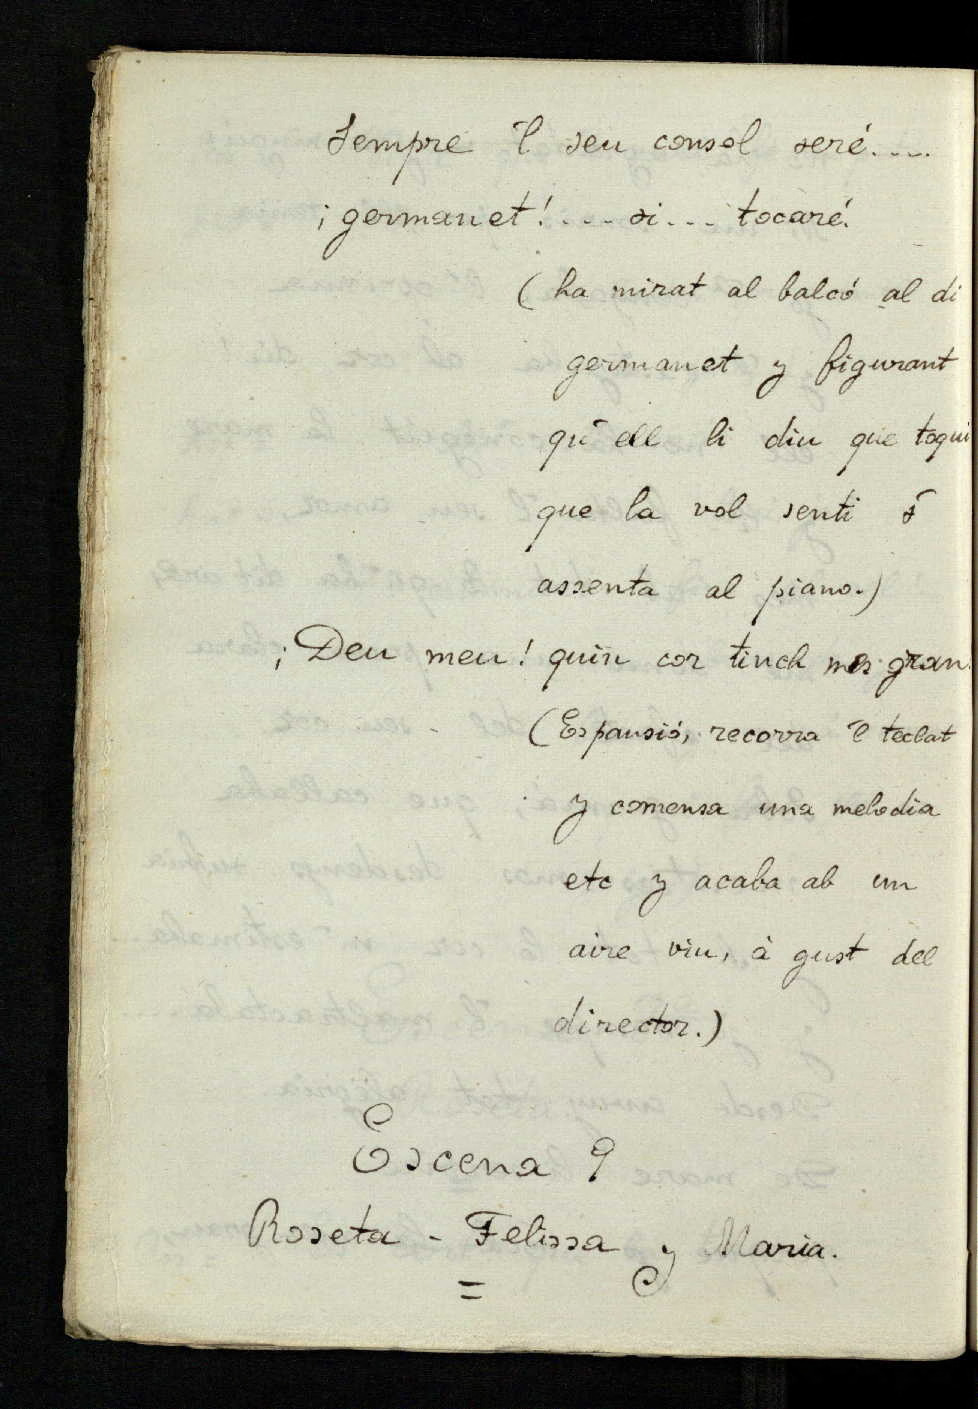 Sempre 'l seu consol seré....
¡germanet!.... si.... tocaré.
(ha mirat al balcó al di
germanet y figurant
qu' ell li diu que toqui
que la vol senti s'
assenta al piano.)
¡Deu meu! quin cor tinch mes gran.
(Espansió, recorra 'l teclat
y comensa una melodia
etc y acaba ab un
aire viu, à gust del
director.)
Escena 9
Roseta - Felissa y Maria.
=